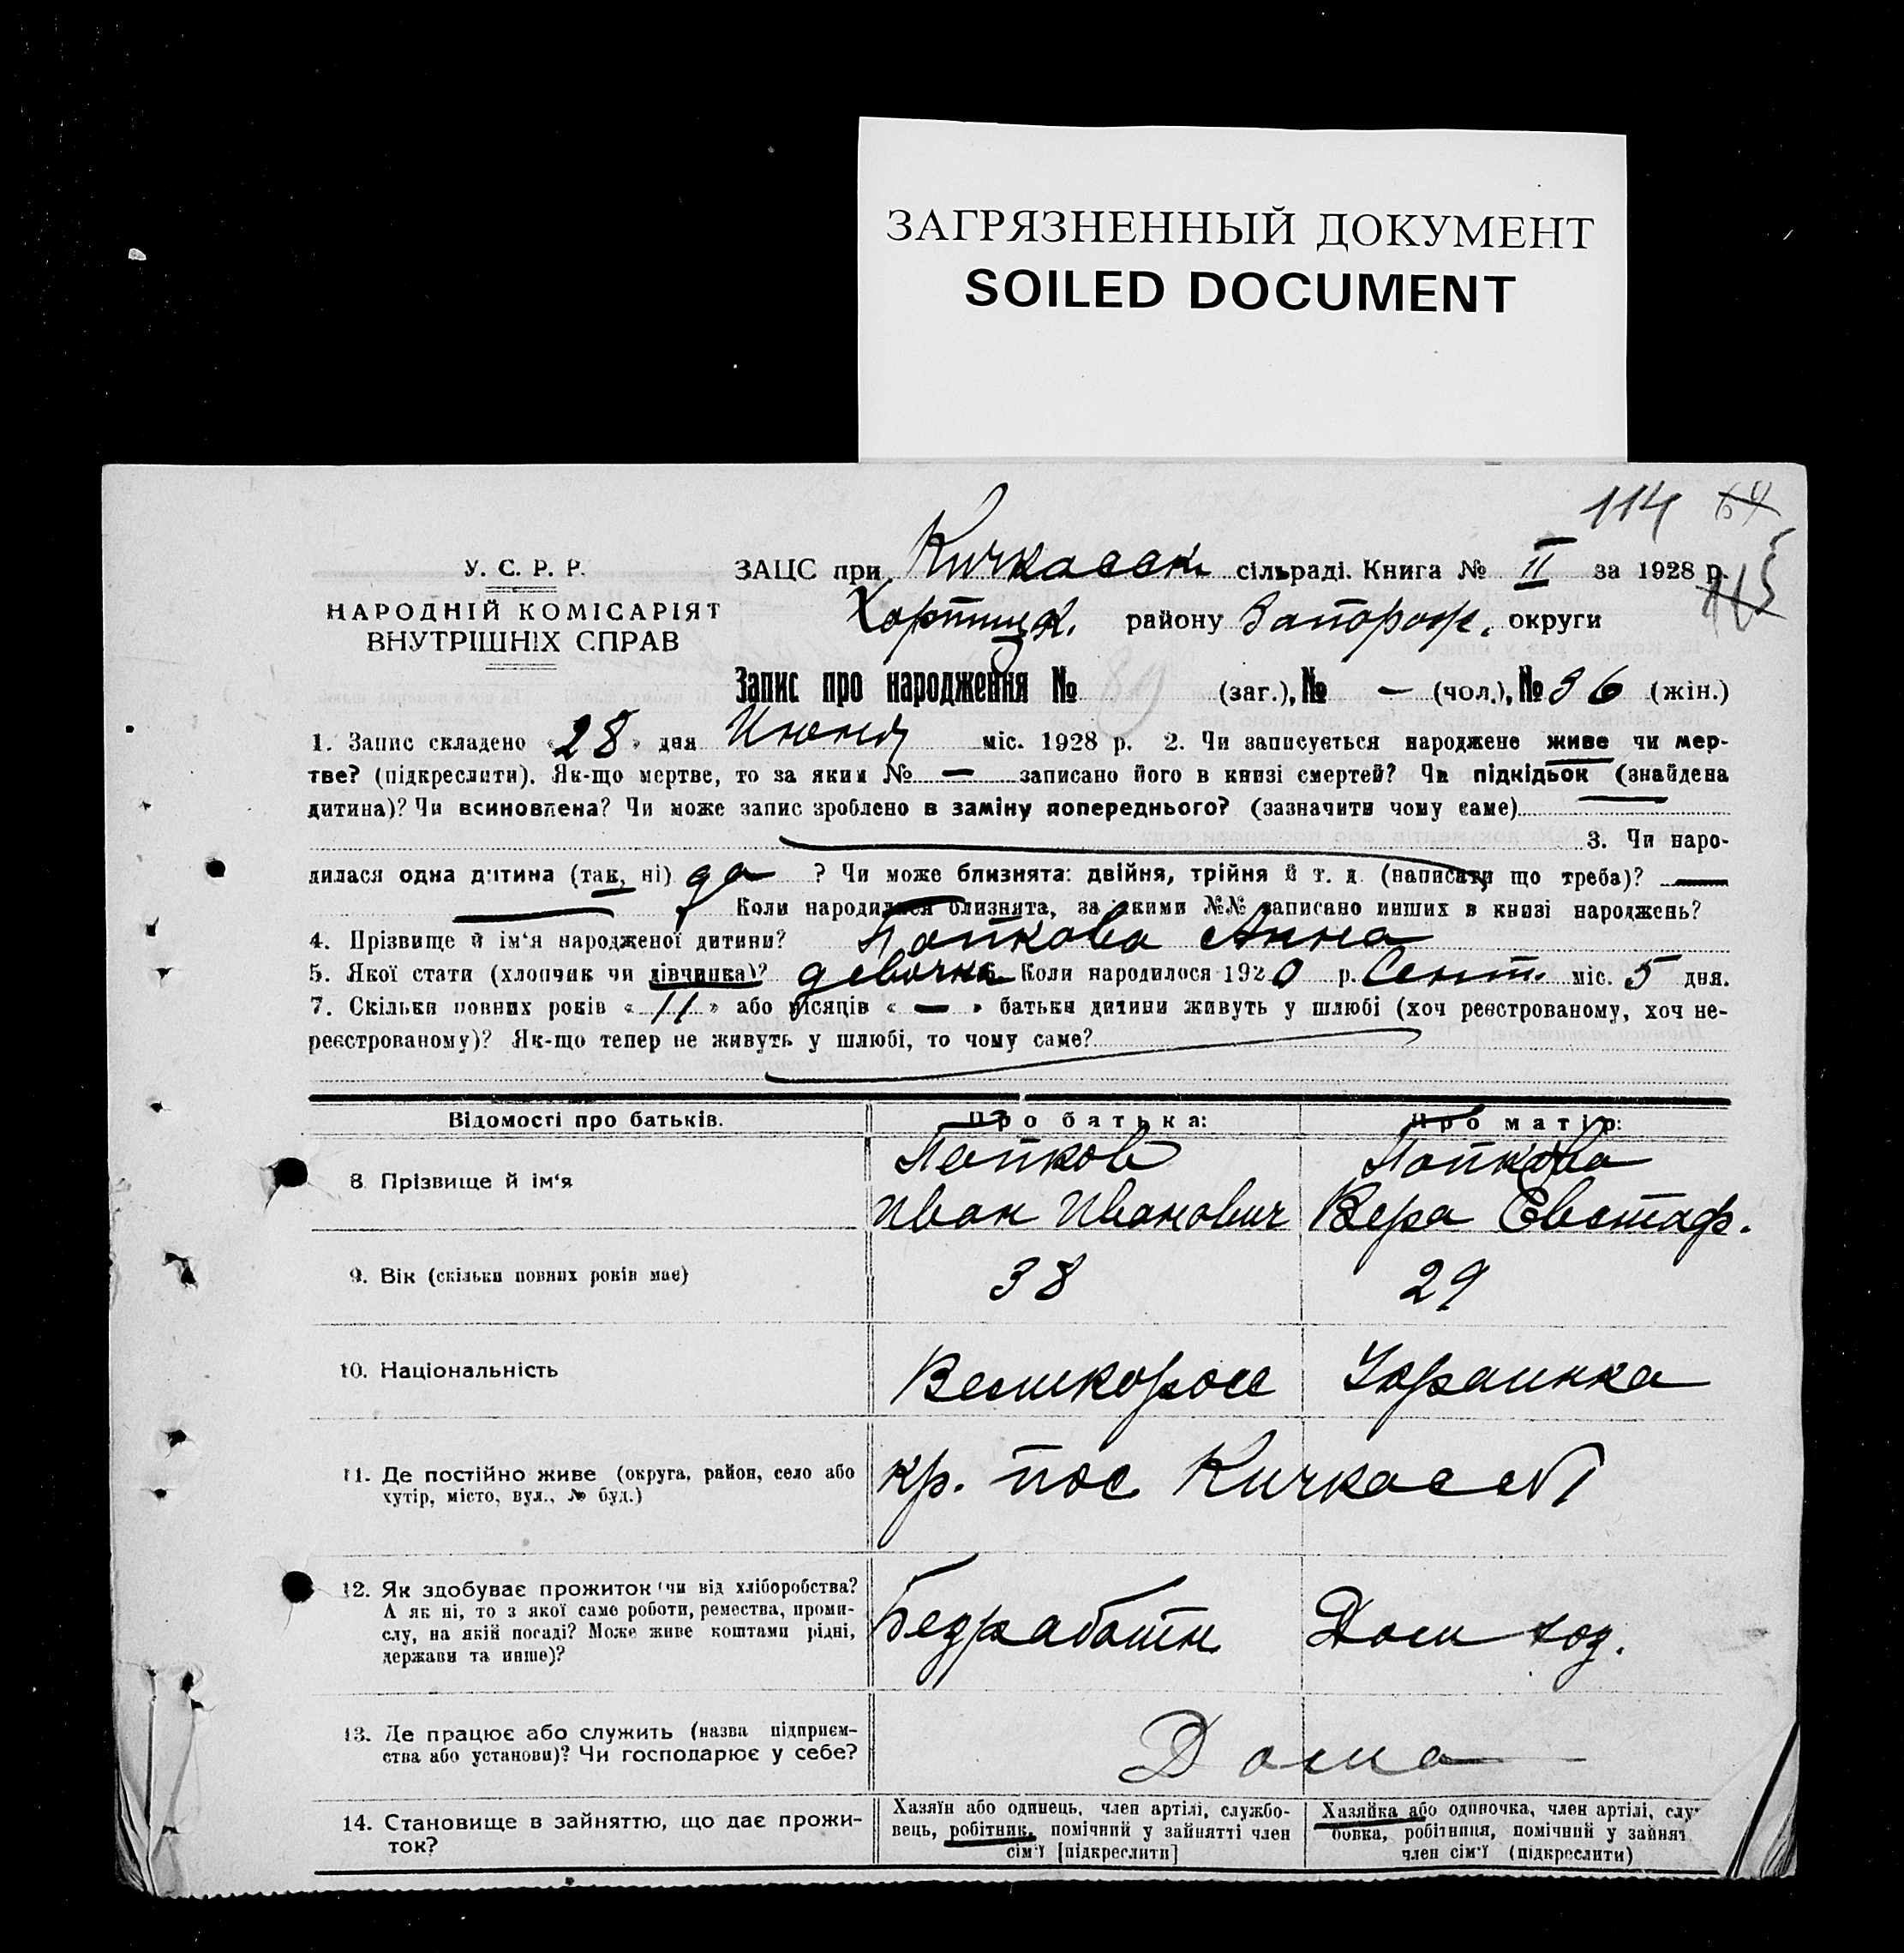 ЗАГРЯЗНЕННЫЙ ДОКУМЕНТ
SOILED DOCUMENT
114 64
У. С. Р. Р.
НАРОДНІЙ КОМІСАРІЯТ
ВНУТРІШНІХ СПРАВ
ЗАЦС при Кичкасск. сільраді. Книга № II за 1928 р.
115
Хортицк. району Запорож. округи
Запис про народження № 89 (заг.), № — (чол.), № 36 (жін.)
1. Запис складено «28» дня Июня міс. 1928 р. 2. Чи записується народжене живе чи мер-
тве? (підкреслити). Як-що мертве, то за яким № — записано його в книзі смертей? Чи підкідьок (знайдена
дитина)? Чи всиновлена? Чи може запис зроблено в заміну попереднього? (зазначити чому саме)
3. Чи наро-
дилася одна дитина (так, ні) да ? Чи може близнята: двійня, трійня й т. д. (написати що треба)? —
Коли народилися близнята, за якими №№ записано инших в книзі народжень?
4. Прізвище й ім‘я народженої дитини? Попкова Анна
5. Якої стати (хлопчик чи дівчинка)? девочка 6. Коли народилося 1920 р. Сент. міс. 5 дня.
7. Скільки повних років «11» або місяців «—» батьки дитини живуть у шлюбі (хоч реєстрованому, хоч не-
реєстрованому)? Як-що тепер не живуть у шлюбі, то чому саме?
Відомості про батьків. Про батька: Про матір:
8 Прізвище й ім‘я
Попков
Иван Иванович
Попкова
Вера Евстаф.
9. Вік (скільки повних років має) 38 29
10. Національність Великоросс Украинка
11. Де постійно живе (округа, район, село або
хутір, місто, вул., № буд.)
кр. пос Кичкассы
12. Як здобуває прожиток (чи від хліборобства?
А як ні, то з якої саме роботи, ремества, проми-
слу, на якій посаді? Може живе коштами рідні,
держави та инше)?
Безработн Дом хоз.
13. Де працює або служить (назва підприєм-
ства або установи)? Чи господарює у себе?
Дома
14. Становище в зайняттю, що дає прожи-
ток?
Хазяїн або одинець, член артілі, службо-
вець, робітник, помічний у зайнятті член
сім‘ї [підкреслити]
Хазяйка або одиночка, член артілі, слу
бовка, робітниця, помічний у зайнят
член сім‘ї (підкреслити)